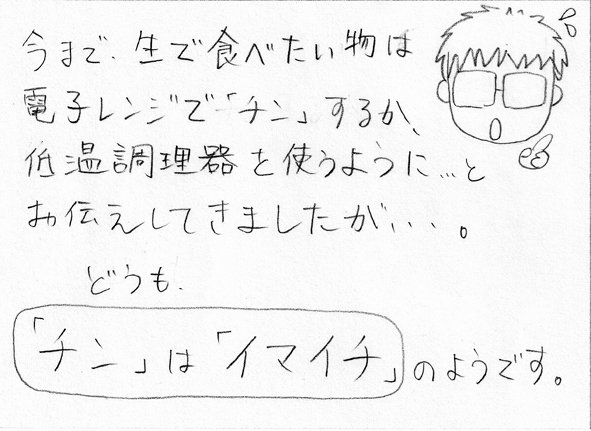 今まで、生で食べたい物は
電子レンジで「チン」するか、
低温調理器を使うように…と
お伝えしてきましたが…。
どうも、
「チン」は「イマイチ」のようです。